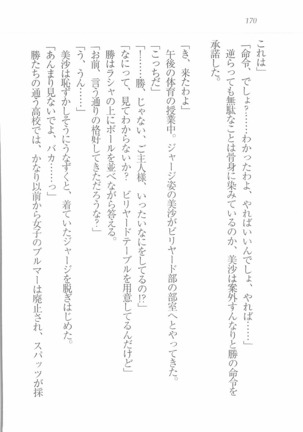 170
これは」
「命令、でしょ？……わかったわよ、やればいいんでしょ、やれば……」
逆らっても無駄なことは骨身に染みているのか、美沙は案外すんなりと勝の命令を
承諾した。
「き、来たわよ」
午後の体育の授業中。ジャージ姿の美沙がビリヤード部の部室へとやってきた。
「こっちだ」
「……勝、じゃない、ご主人様、いったいなにをしてるの!?」
「なにって、見てわからないか？　ビリヤードテーブルを用意してるんだけど」
勝はラシャの上にボールを並べながら答える。
「お前、言う通りの格好してきただろうな？」
「う、うん……」
美沙は恥ずかしそうにうなずくと、着ていたジャージを脱ぎはじめた。
「あんまり見ないでよ、バカ……っ」
勝たちの通う高校では、かなり以前から女子のブルマーは廃止され、スパッツが採